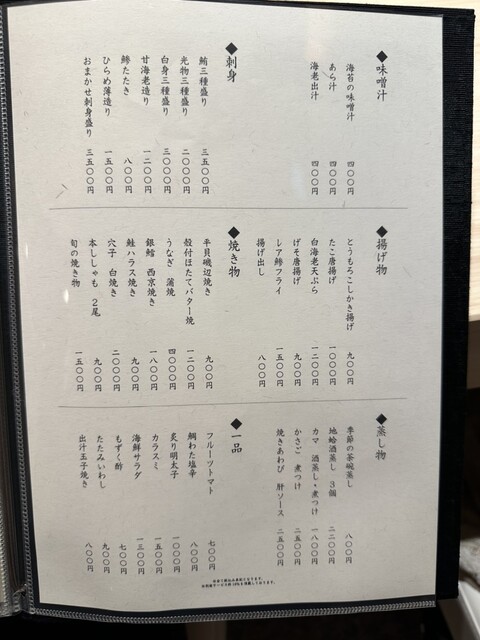 ◆味噌汁
海苔の味噌汁 四〇〇円
あら汁 四〇〇円
海老出汁 四〇〇円
◆刺身
鮪三種盛り 三五〇〇円
光物三種盛り 二〇〇〇円
白身三種盛り 三〇〇〇円
甘海老造り 一二〇〇円
鯵たたき 八〇〇円
ひらめ薄造り 一五〇〇円
おまかせ刺身盛り 三五〇〇円
◆揚げ物
とうもろこしかき揚げ 九〇〇円
たこ唐揚げ 一〇〇〇円
白海老天ぷら 一二〇〇円
げそ唐揚げ 九〇〇円
レア鯵フライ 一五〇〇円
揚げ出し 八〇〇円
◆焼き物
平貝磯辺焼き 九〇〇円
殻付ほたてバター焼 一二〇〇円
うなぎ 蒲焼 四〇〇〇円
銀鱈 西京焼き 一八〇〇円
鮭ハラス焼き 九〇〇円
穴子 白焼き 二〇〇〇円
本ししゃも 2尾 九〇〇円
旬の焼き物 一五〇〇円
◆蒸し物
季節の茶碗蒸し 八〇〇円
地蛤酒蒸し 3個 二二〇〇円
カマ 酒蒸し・煮つけ 一八〇〇円
かさご 煮つけ 二五〇〇円
焼きあわび 肝ソース 二五〇〇円
◆一品
フルーツトマト 七〇〇円
鯛わた塩辛 八〇〇円
炙り明太子 一〇〇〇円
カラスミ 一五〇〇円
海鮮サラダ 一三〇〇円
もずく酢 七〇〇円
たたみいわし 九〇〇円
出汁玉子焼き 八〇〇円
別途サービス料10%を頂戴しております。